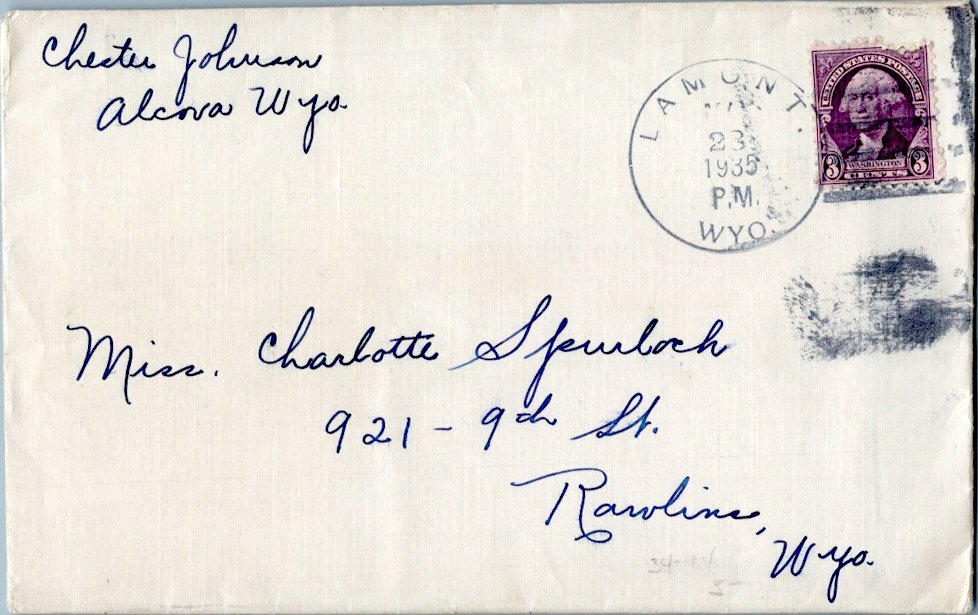 Chester Johnson
Alcova Wyo.
LAMONT.
23
1935
P.M.
WYO.
UNITED STATES POSTAGE
3 WASHINGTON 3
CENTS
Miss. Charlotte Spurloch
921 - 9th St.
Rawlins,
Wyo.